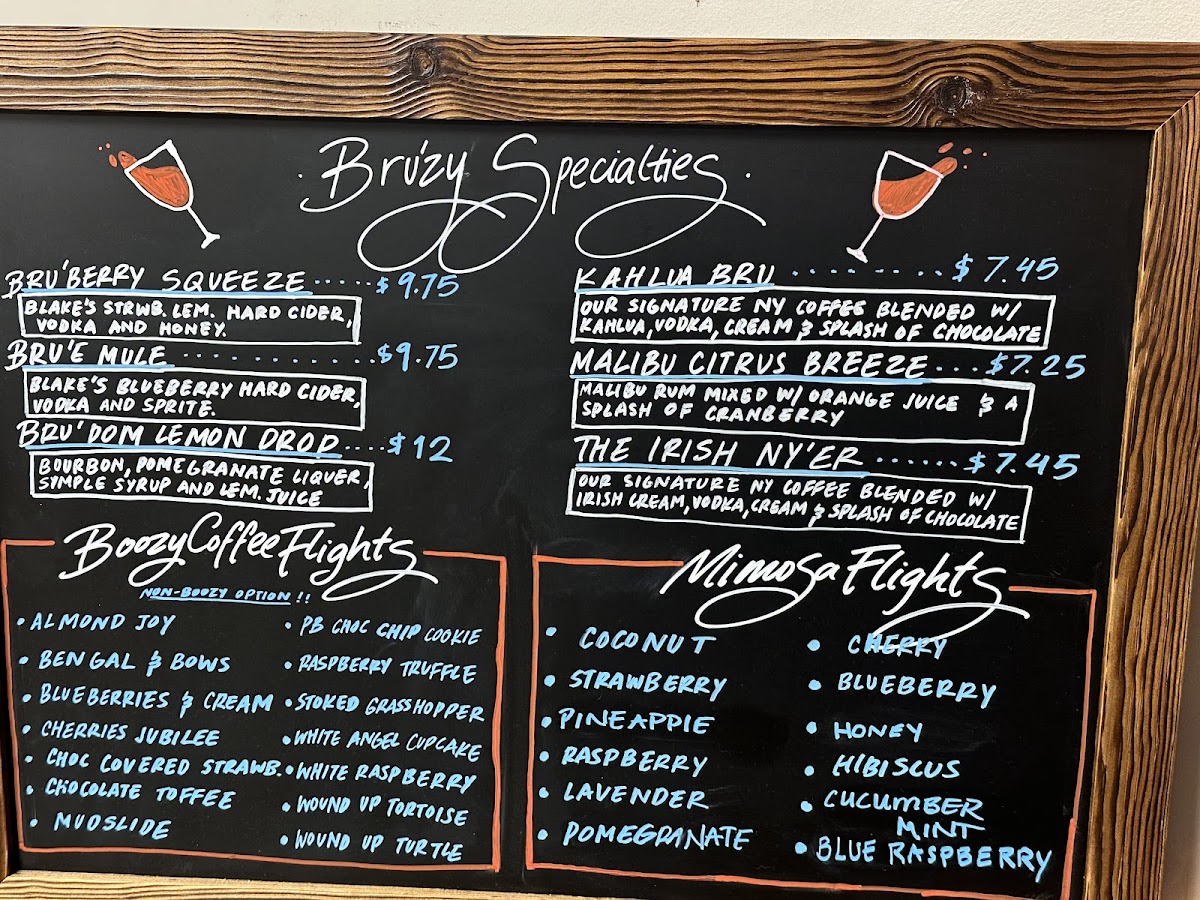 . Bru'zy Specialties .
BRU'BERRY SQUEEZE ..... $9.75
BLAKE'S STRWB. LEM. HARD CIDER,
VODKA AND HONEY.
BRU'E MULE ............ $9.75
BLAKE'S BLUEBERRY HARD CIDER,
VODKA AND SPRITE.
BRU'DOM LEMON DROP .... $12
BOURBON, POMEGRANATE LIQUER,
SYMPLE SYRUP AND LEM. JUICE
KAHLUA BRU ......... $7.45
OUR SIGNATURE NY COFFEE BLENDED W/
KAHLUA, VODKA, CREAM & SPLASH OF CHOCOLATE
MALIBU CITRUS BREEZE ... $7.25
MALIBU RUM MIXED W/ ORANGE JUICE & A
SPLASH OF CRANBERRY
THE IRISH NY'ER ....... $7.45
OUR SIGNATURE NY COFFEE BLENDED W/
IRISH CREAM, VODKA, CREAM & SPLASH OF CHOCOLATE
Boozy Coffee Flights
NON-BOOZY OPTION!!
• ALMOND JOY
• BENGAL & BOWS
• BLUEBERRIES & CREAM
• CHERRIES JUBILEE
• CHOC COVERED STRAWB.
• CHOCOLATE TOFFEE
• MUDSLIDE
• PB CHOC CHIP COOKIE
• RASPBERRY TRUFFLE
• STOKED GRASSHOPPER
• WHITE ANGEL CUPCAKE
• WHITE RASPBERRY
• WOUND UP TORTOISE
• WOUND UP TURTLE
Mimosa Flights
• COCONUT
• STRAWBERRY
• PINEAPPIE
• RASPBERRY
• LAVENDER
• POMEGRANATE
• CHERRY
• BLUEBERRY
• HONEY
• HIBISCUS
• CUCUMBER
MINT
• BLUE RASPBERRY